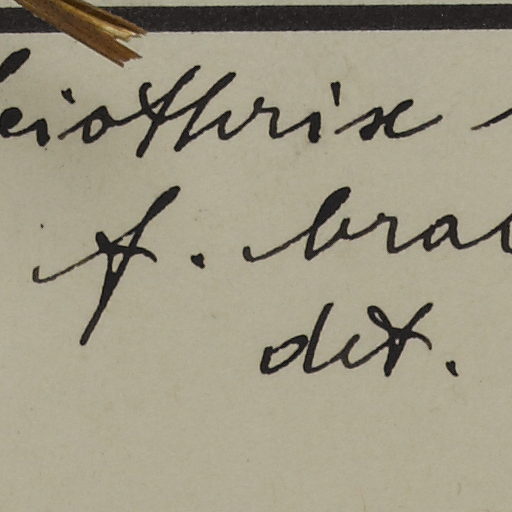 eiothrix
f. bra
det.